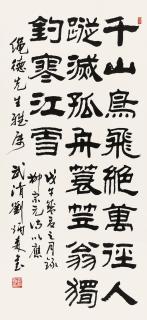 千山鳥飛絶萬徑人
蹤滅孤舟蓑笠翁獨
釣寒江雪
戊午年夏之月錄
柳宗元詩以應
繩德先生雅屬
武清劉炳森